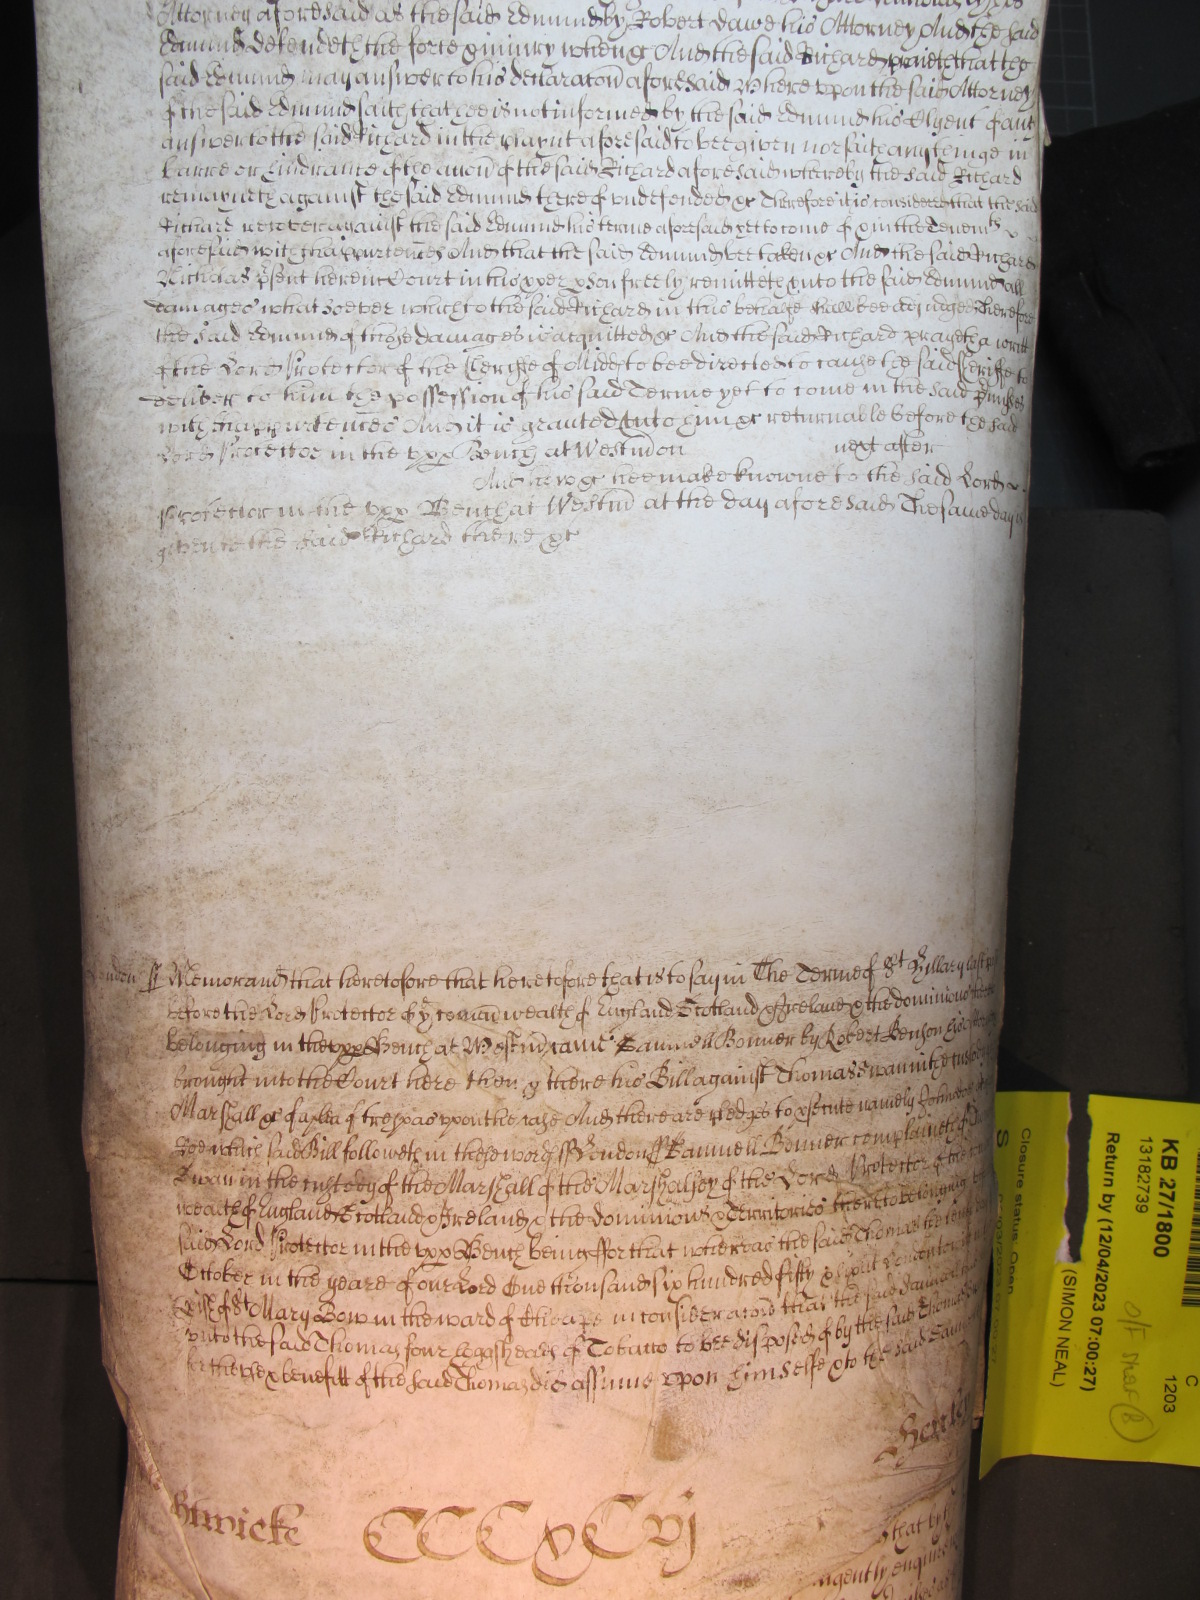 Attorney aforesaid as the said Edmund by Robert Dawe his Attorney And the said
Edmund defendeth the force & iniury when &c And the said Richard prayeth that the
said Edmund may answer to his declaracon aforesaid Where vpon the said Attorney
of the said Edmund saith that hee is not informed by the said Edmund his Clyent of any
answer to the said Richard in the playnt aforesaid to bee given nor saith any thinge in
barre or hindrance of the accon of the said Richard aforesaid whereby the said Richard
remayneth against the said Edmund thereof vndefended &c Therefore it is considered that the said
Richard recover against the said Edmund his terme aforesaid yet to come of & in the Tenemts
aforesaid with thappurtences And that the said Edmund bee taken &c And the said Richard
Nicholas psent here in Court in his pper pson freely remitteth vnto the said Edmund all
damages whatsoever which to the said Richard in this behalfe shall bee adjudged Therefore
the said Edmund of those damages is acquitted &c And the said Richard prayeth a writt
of the Lord Protector of the Sheriffe of Midd to bee directed to cause the said Sheriffe to
deliver to him the possession of his said Terme yet to come in the said pmisses
with thappurtences And it is granted vnto him &c returnable before the said
Lord Protector in the vpp Bench at Westm on next after
And how &c hee make knowne to the said Lord
Protector in the vpp Bench at Westm at the day aforesaid The same day is
given to the said Richard there &c
London ss Memorand that heretofore that heretofore that is to say in The Terme of St Hillary last
before the Lord Protector of ye comon wealth of England Scotland & Ireland & the dominions
belonging in the vpp Bench at Westm came Samuell Bonner by Robert Benson his
brought into the Court here then & there his Bill against Thomas Swan in the custody
Marshall &c of a plea of trespas vpon the case And there are pledges to psecute namely John
Roe which said Bill followeth in these words ss London ss Samuell Bonner complaineth of
Swan in the custody of the Marshall of the Marshalsey of the Lord Protector of the
wealth of England Scotland & Ireland & the dominions & Territories thereto belonging
said Lord Protector in the vpp Bench being ffor that whereas the said Thomas the
October in the yeare of our Lord One thousand six hundred fifty & att London
pish of St Mary Bow in the ward of Cheape in consideracon that the said Samuell
vnto the said Thomas four hoggsheads of Tobacco to bee disposed of by the said Thomas
for the vse & benefitt of the said Thomas did assume vpon himselfe & to the said Sam
CCCxCvj
that by
KB 27/1800
13182739
Return by (12/04/2023 07:00:27)
(SIMON NEAL)
Closure status: Open
C
1203
S